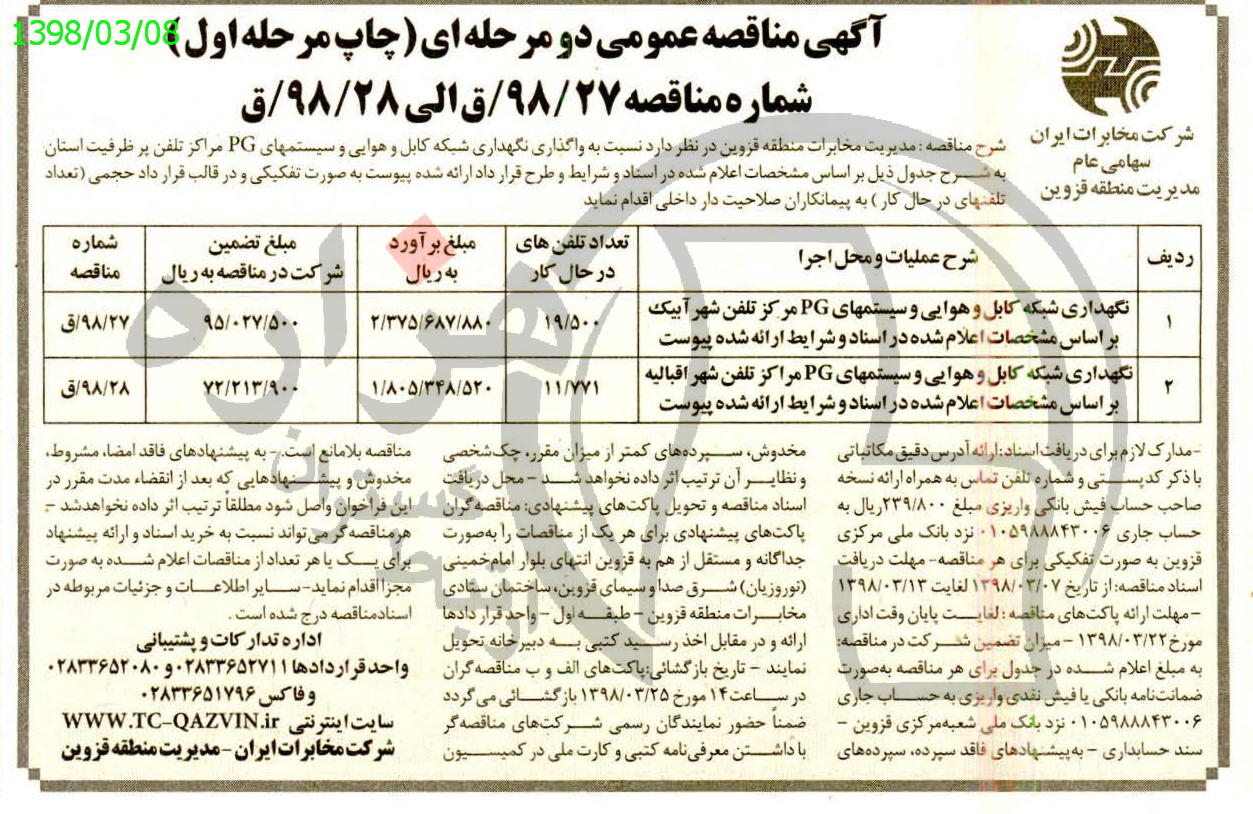 1398/03/08
آگهی مناقصه عمومی دو مرحله ای (چاپ مرحله اول)
شماره مناقصه ۹۸/۲۷/ق الی ۹۸/۲۸/ق
شرکت مخابرات ایران
سهامی عام
مدیریت منطقه قزوین
شرح مناقصه : مدیریت مخابرات منطقه قزوین در نظر دارد نسبت به واگذاری نگهداری شبکه کابل و هوایی و سیستمهای PG مراکز تلفن پر ظرفیت استان
به شرح جدول ذیل بر اساس مشخصات اعلام شده در اسناد و شرایط و طرح قرار داد ارائه شده پیوست به صورت تفکیکی و در قالب قرار داد حجمی (تعداد
تلفنهای در حال کار ) به پیمانکاران صلاحیت دار داخلی اقدام نماید
ردیف شرح عملیات و محل اجرا تعداد تلفن های در حال کار مبلغ برآورد به ریال مبلغ تضمین شرکت در مناقصه به ریال شماره مناقصه
۱ نگهداری شبکه کابل و هوایی و سیستمهای PG مرکز تلفن شهر آبیک بر اساس مشخصات اعلام شده در اسناد و شرایط ارائه شده پیوست ۱۹/۵۰۰ ۲/۳۷۵/۶۸۷/۸۸۰ ۹۵/۰۲۷/۵۰۰ ۹۸/۲۷/ق
۲ نگهداری شبکه کابل و هوایی و سیستمهای PG مراکز تلفن شهر اقبالیه بر اساس مشخصات اعلام شده در اسناد و شرایط ارائه شده پیوست ۱۱/۷۷۱ ۱/۸۰۵/۳۴۸/۵۲۰ ۷۲/۲۱۳/۹۰۰ ۹۸/۲۸/ق
-مدارک لازم برای دریافت اسناد: ارائه آدرس دقیق مکاتباتی
با ذکر کدپستی و شماره تلفن تماس به همراه ارائه نسخه
صاحب حساب فیش بانکی واریزی مبلغ ۲۳۹/۸۰۰ریال به
حساب جاری ۰۱۰۵۹۸۸۸۴۳۰۰۶ نزد بانک ملی مرکزی
قزوین به صورت تفکیکی برای هر مناقصه- مهلت دریافت
اسناد مناقصه: از تاریخ ۱۳۹۸/۰۳/۰۷ لغایت ۱۳۹۸/۰۳/۱۳
-مهلت ارائه پاکت‌های مناقصه : لغایت پایان وقت اداری
مورخ ۱۳۹۸/۰۳/۲۲ -میزان تضمین شرکت در مناقصه:
به مبلغ اعلام شده در جدول برای هر مناقصه به‌صورت
ضمانت‌نامه بانکی یا فیش نقدی واریزی به حساب جاری
۰۱۰۵۹۸۸۸۴۳۰۰۶ نزد بانک ملی شعبه‌مرکزی قزوین -
سند حسابداری - به‌پیشنهادهای فاقد سپرده، سپرده‌های
مخدوش، سپرده‌های کمتر از میزان مقرر، چک‌شخصی
و نظایر آن ترتیب اثر داده نخواهد شد - محل دریافت
اسناد مناقصه و تحویل پاکت‌های پیشنهادی: مناقصه‌گران
پاکت‌های پیشنهادی برای هر یک از مناقصات را به‌صورت
جداگانه و مستقل از هم به قزوین انتهای بلوار امام‌خمینی
(نوروزیان) شرق صدا و سیمای قزوین، ساختمان ستادی
مخابرات منطقه قزوین - طبقه اول - واحد قرار دادها
ارائه و در مقابل اخذ رسید کتبی به دبیرخانه تحویل
نمایند - تاریخ بازگشائی:پاکت‌های الف و ب مناقصه‌گران
در ساعت۱۴ مورخ ۱۳۹۸/۰۳/۲۵ بازگشائی می گردد
ضمناً حضور نمایندگان رسمی شرکت‌های مناقصه‌گر
با داشتن معرفی‌نامه کتبی و کارت ملی در کمیسیون
مناقصه بلامانع است.- به پیشنهادهای فاقد امضا، مشروط،
مخدوش و پیشنهادهایی که بعد از انقضاء مدت مقرر در
این فراخوان واصل شود مطلقاً ترتیب اثر داده نخواهدشد -
هرمناقصه‌گر می‌تواند نسبت به خرید اسناد و ارائه پیشنهاد
برای یک یا هر تعداد از مناقصات اعلام شده به صورت
مجزا اقدام نماید- سایر اطلاعات و جزئیات مربوطه در
اسنادمناقصه درج شده است.
اداره تدارکات و پشتیبانی
واحد قراردادها ۰۲۸۳۳۶۵۲۷۱۱ و ۰۲۸۳۳۶۵۲۰۸۰
و فاکس ۰۲۸۳۳۶۵۱۷۹۶
سایت اینترنتی WWW.TC-QAZVIN.ir
شرکت مخابرات ایران -مدیریت منطقه قزوین